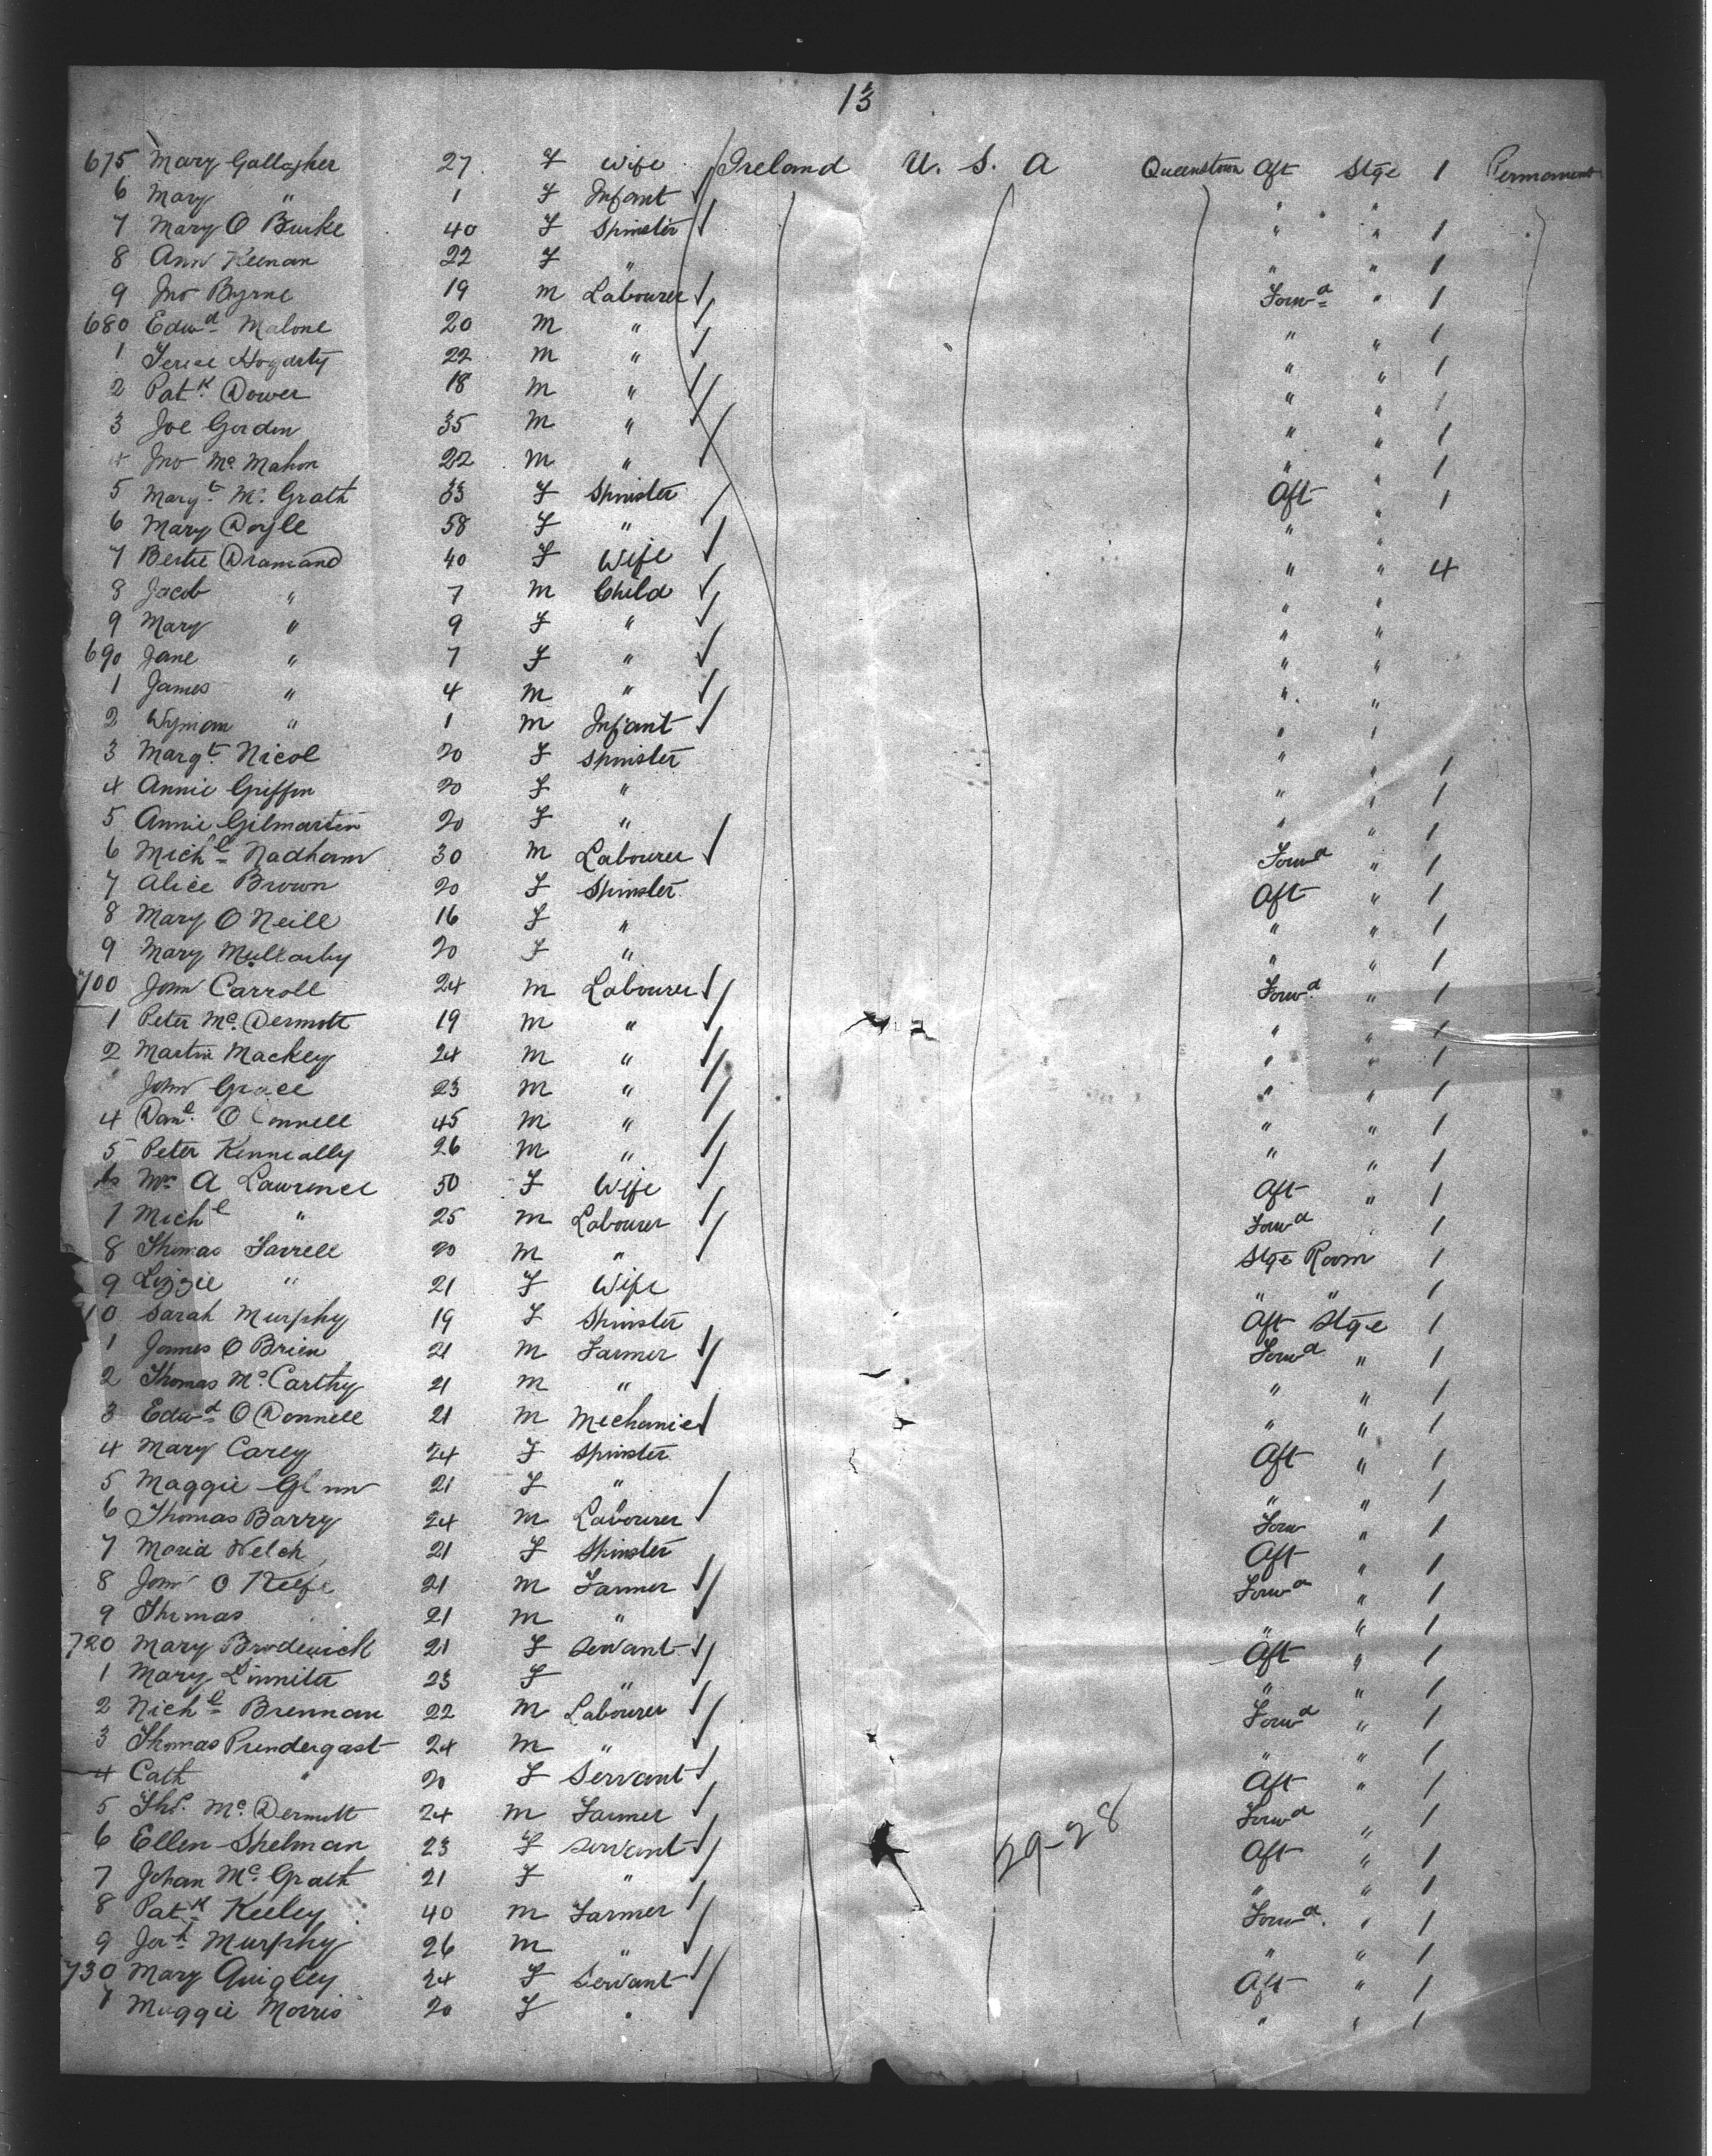 13
675 Mary Gallagher 27 F Wife Ireland U. S. A Queenstown Aft Stge 1 Permanent
6 Mary " 1 F Infant " "
7 Mary O Burke 40 F Spinster " " 1
8 Ann Keenan 22 F " " " 1
9 Jno Byrne 19 M Labourer Forwd " 1
680 Edwd Malone 20 M " " " 1
1 Hogarty 22 M " " " 1
2 Patk Dower 18 M " " " 1
3 Joe Gordon 35 M " " " 1
4 Jno Mc Mahon 22 M " " " 1
5 Margt Mc Grath 33 F Spinster Aft " 1
6 Mary Doyle 58 F " " "
7 Bertie Dramand 40 F Wife " " 4
8 Jacob " 7 M Child " "
9 Mary " 9 F " " "
690 Jane " 7 F " " "
1 James " 4 M " " "
2 Wyman " 1 M Infant " "
3 Margt Nicol 20 F Spinster " " 1
4 Annie Griffin 20 F " " " 1
5 Annie Gilmartin 20 F " " " 1
6 Michl Nadham 30 M Labourer Forwd " 1
7 Alice Brown 20 F Spinster Aft " 1
8 Mary O Neill 16 F " " " 1
9 Mary Mullarby 20 F " " " 1
700 John Carroll 24 M Labourer Forwd " 1
1 Peter Mc Dermott 19 M " " " 1
2 Martin Mackey 24 M " " " 1
John Grace 23 M " " " 1
4 Danl O Connell 45 M " " " 1
5 Peter Kenneally 26 M " " " 1
6 Mrs A Lawrence 50 F Wife Aft " 1
7 Michl " 25 M Labourer Forwd " 1
8 Thomas Farrell 20 M " Stge Room 1
9 Lizzie " 21 F Wife " " 1
10 Sarah Murphy 19 F Spinster Aft Stge 1
1 James O Brien 21 M Farmer Forwd " 1
2 Thomas Mc Carthy 21 M " " " 1
3 Edwd O Donnell 21 M Mechanic " " 1
4 Mary Carey 24 F Spinster Aft " 1
5 Maggie Glnn 21 F " " " 1
6 Thomas Barry 24 M Labourer Forw " 1
7 Maria Welch 21 F Spinster Aft " 1
8 John O Keefe 21 M Farmer Forwd " 1
9 Thomas 21 M " " " 1
720 Mary Broderick 21 F Servant Aft " 1
1 Mary Linniter 23 F " " " 1
2 Nichl Brennan 22 M Labourer Forwd " 1
3 Thomas Prendergast 24 M " " " 1
4 Cath " 20 F Servant Aft " 1
5 Thos. Mc Dermott 24 M Farmer Forwd " 1
6 Ellen Shelman 23 F Servant Aft " 1
29-28
7 Johan Mc Grath 21 F " " " 1
8 Patk Keeley 40 M Farmer Forwd " 1
9 Jerh Murphy 26 M " " " 1
730 Mary Quigley 24 F Servant Aft " 1
1 Maggie Morris 20 F " " " 1